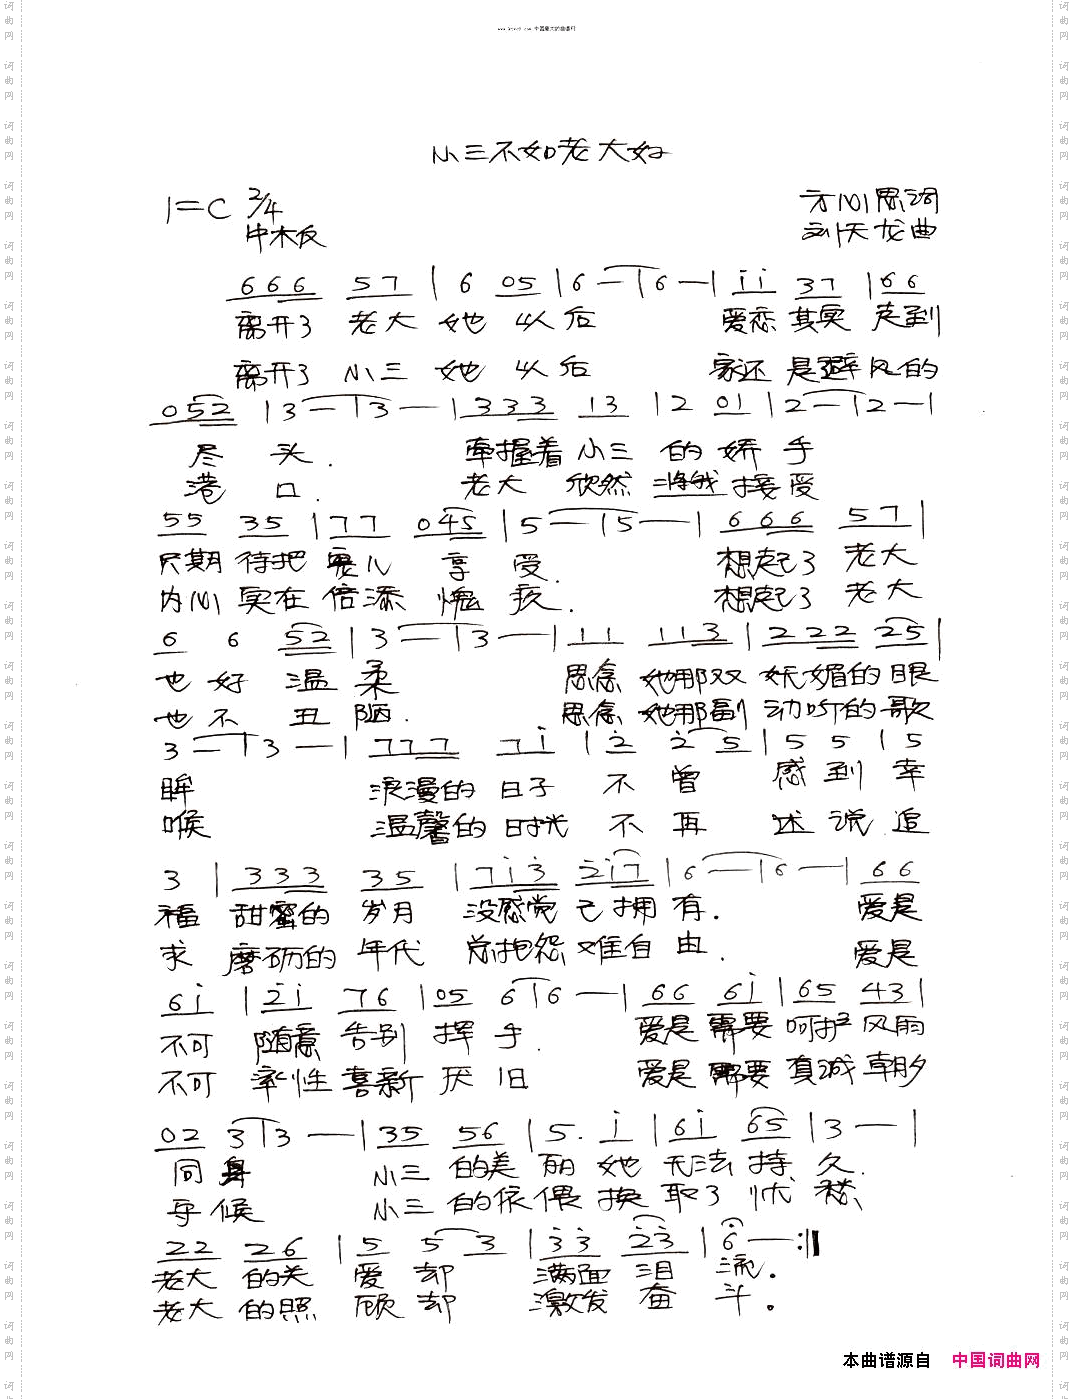 小三不如老大好
1=C 2/4
方心思词
中木反
刘天龙曲
6 6 6 5 7 | 6 0 5 | 6 — | 6 — | i i 3 7 | 6 6
离开了 老大 她 以后 爱恋 其实 走到
离开了 小三 她 以后 家还 是避 风的
0 5 2 | 3 — | 3 — | 3 3 3 1 3 | 2 0 1 | 2 — | 2 — |
尽 头. 牵握着 小三 的 娇 手
港 口. 老大 欣然 将我 接受
5 5 3 5 | 7 7 0 4 5 | 5 — | 5 — | 6 6 6 5 7 |
只期 待把 宠儿 享 受. 想起了 老大
内心 实在 倍添 愧 疚. 想起了 老大
6 6 5 2 | 3 — | 3 — | 1 1 1 1 3 | 2 2 2 2 5 |
也 好 温 柔 思念 她那双 妩媚的 眼
也 不 丑 陋. 思念 她那副 动听的 歌
3 — | 3 — | 7 7 7 7 i | 2 2 5 | 5 5 | 5
眸 浪漫的 日子 不 曾 感 到 幸
喉 温馨的 时光 不 再 述 说 追
3 | 3 3 3 3 5 | 7 i 3 2 i 7 | 6 — | 6 — | 6 6
福 甜蜜的 岁月 没感觉 己拥 有. 爱是
求 磨砺的 年代 总抱怨 难自 由. 爱是
6 i | 2 i 7 6 | 0 5 6 | 6 — | 6 6 6 i | 6 5 4 3 |
不可 随意 告别 挥 手. 爱是 需要 呵护 风雨
不可 率性 喜新 厌 旧 爱是 需要 真诚 朝夕
0 2 3 | 3 — | 3 5 5 6 | 5 . i | 6 i 6 5 | 3 — |
同 舟 小三 的美 丽 她 无法 持 久.
守 候 小三 的依 偎 换 取了 忧 愁.
2 2 2 6 | 5 5 3 | 3 3 2 3 | 6 — :||
老大 的关 爱 却 满面 泪 流.
老大 的照 顾 却 激发 奋 斗.
本曲谱源自 中国词曲网